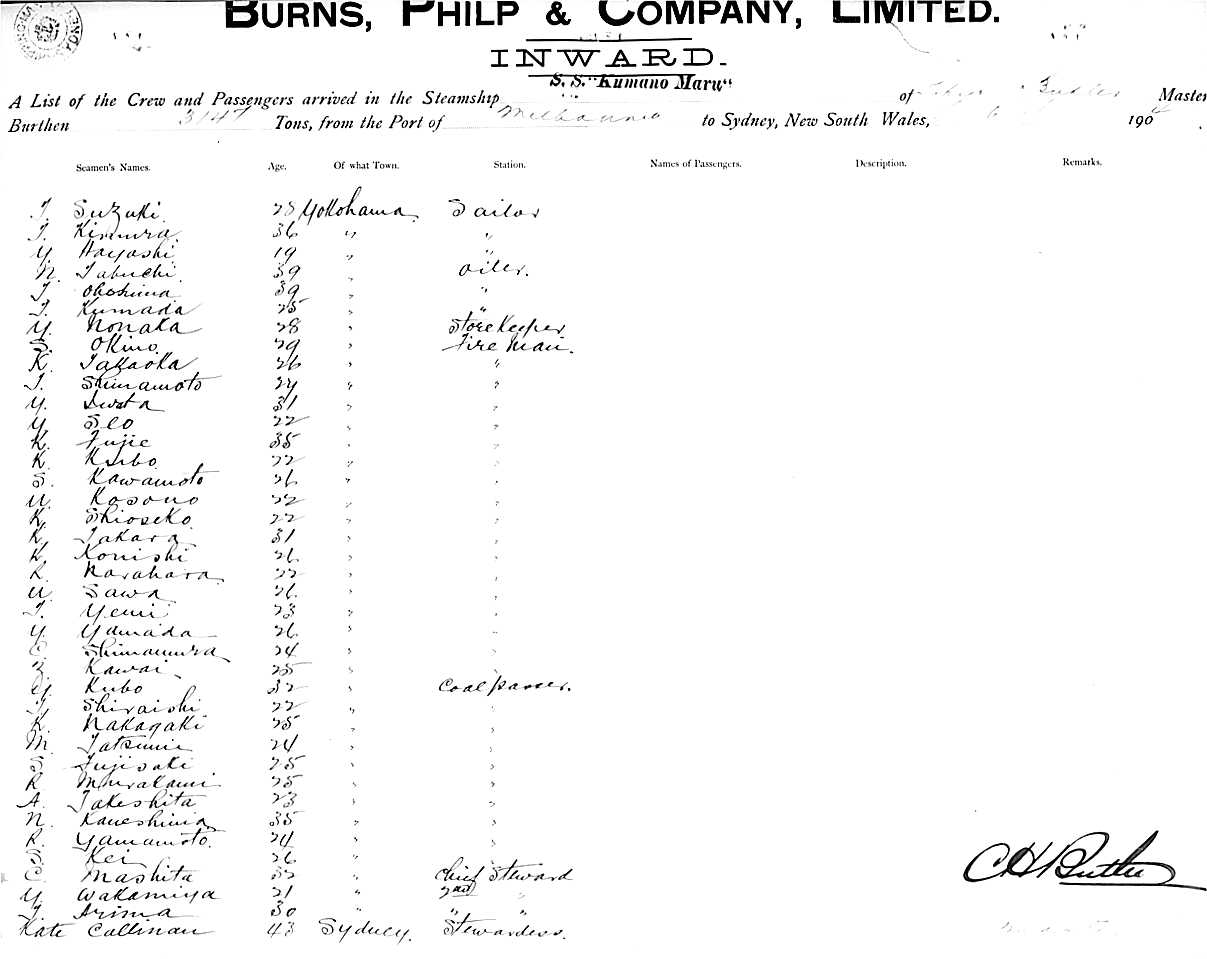 BURNS, PHILP & COMPANY, LIMITED.
INWARD.
S. S. "Kumano Maru"
A List of the Crew and Passengers arrived in the Steamship of Butler Master
Burthen 3147 Tons, from the Port of Melbourne to Sydney, New South Wales, 6 190
Seamen's Names. Age. Of what Town. Station. Names of Passengers. Description. Remarks.
T. Suzuki 28 Yokohama Sailor
T. Kimura 36 " "
Y. Hayashi 19 " "
N. Tabuchi 39 " Oiler.
T. 39 " "
T. Kumada 25 " "
Y. Nonaka 28 " Store Keeper
S. Okino 29 " Fire Man.
K. Takaoka 26 " "
T. Shimamoto 24 " "
Y. Iwata 31 " "
Y. Seo 22 " "
K. Fujie 35 " "
K. Kubo 22 " "
S. Kawamoto 26 " "
U. Kosono 22 " "
K. Shioseko 22 " "
K. Takara 31 " "
K. Konishi 26 " "
R. Narahara 22 " "
U. Sawa 26 " "
T. 23 " "
Y. Yamada 26 " "
C. Shimamura 24 " "
Z. Kawai 25 " "
Y. Kubo 32 " Coal passer.
Y. Shiraishi 22 " "
K. Nakagaki 25 " "
M. Tatsumi 24 " "
S. Fujisaki 25 " "
R. Murakami 25 " "
A. Takeshita 23 " "
N. Kaneshima 35 " "
R. Yamamoto. 24 " "
S. Kei 26 " "
C. Mashita 32 " Chief Steward
Y. Wakamiya 21 " 2nd "
T. Arima 30 " " "
Kate Callinan 43 Sydney. Stewardess.
C H Butler